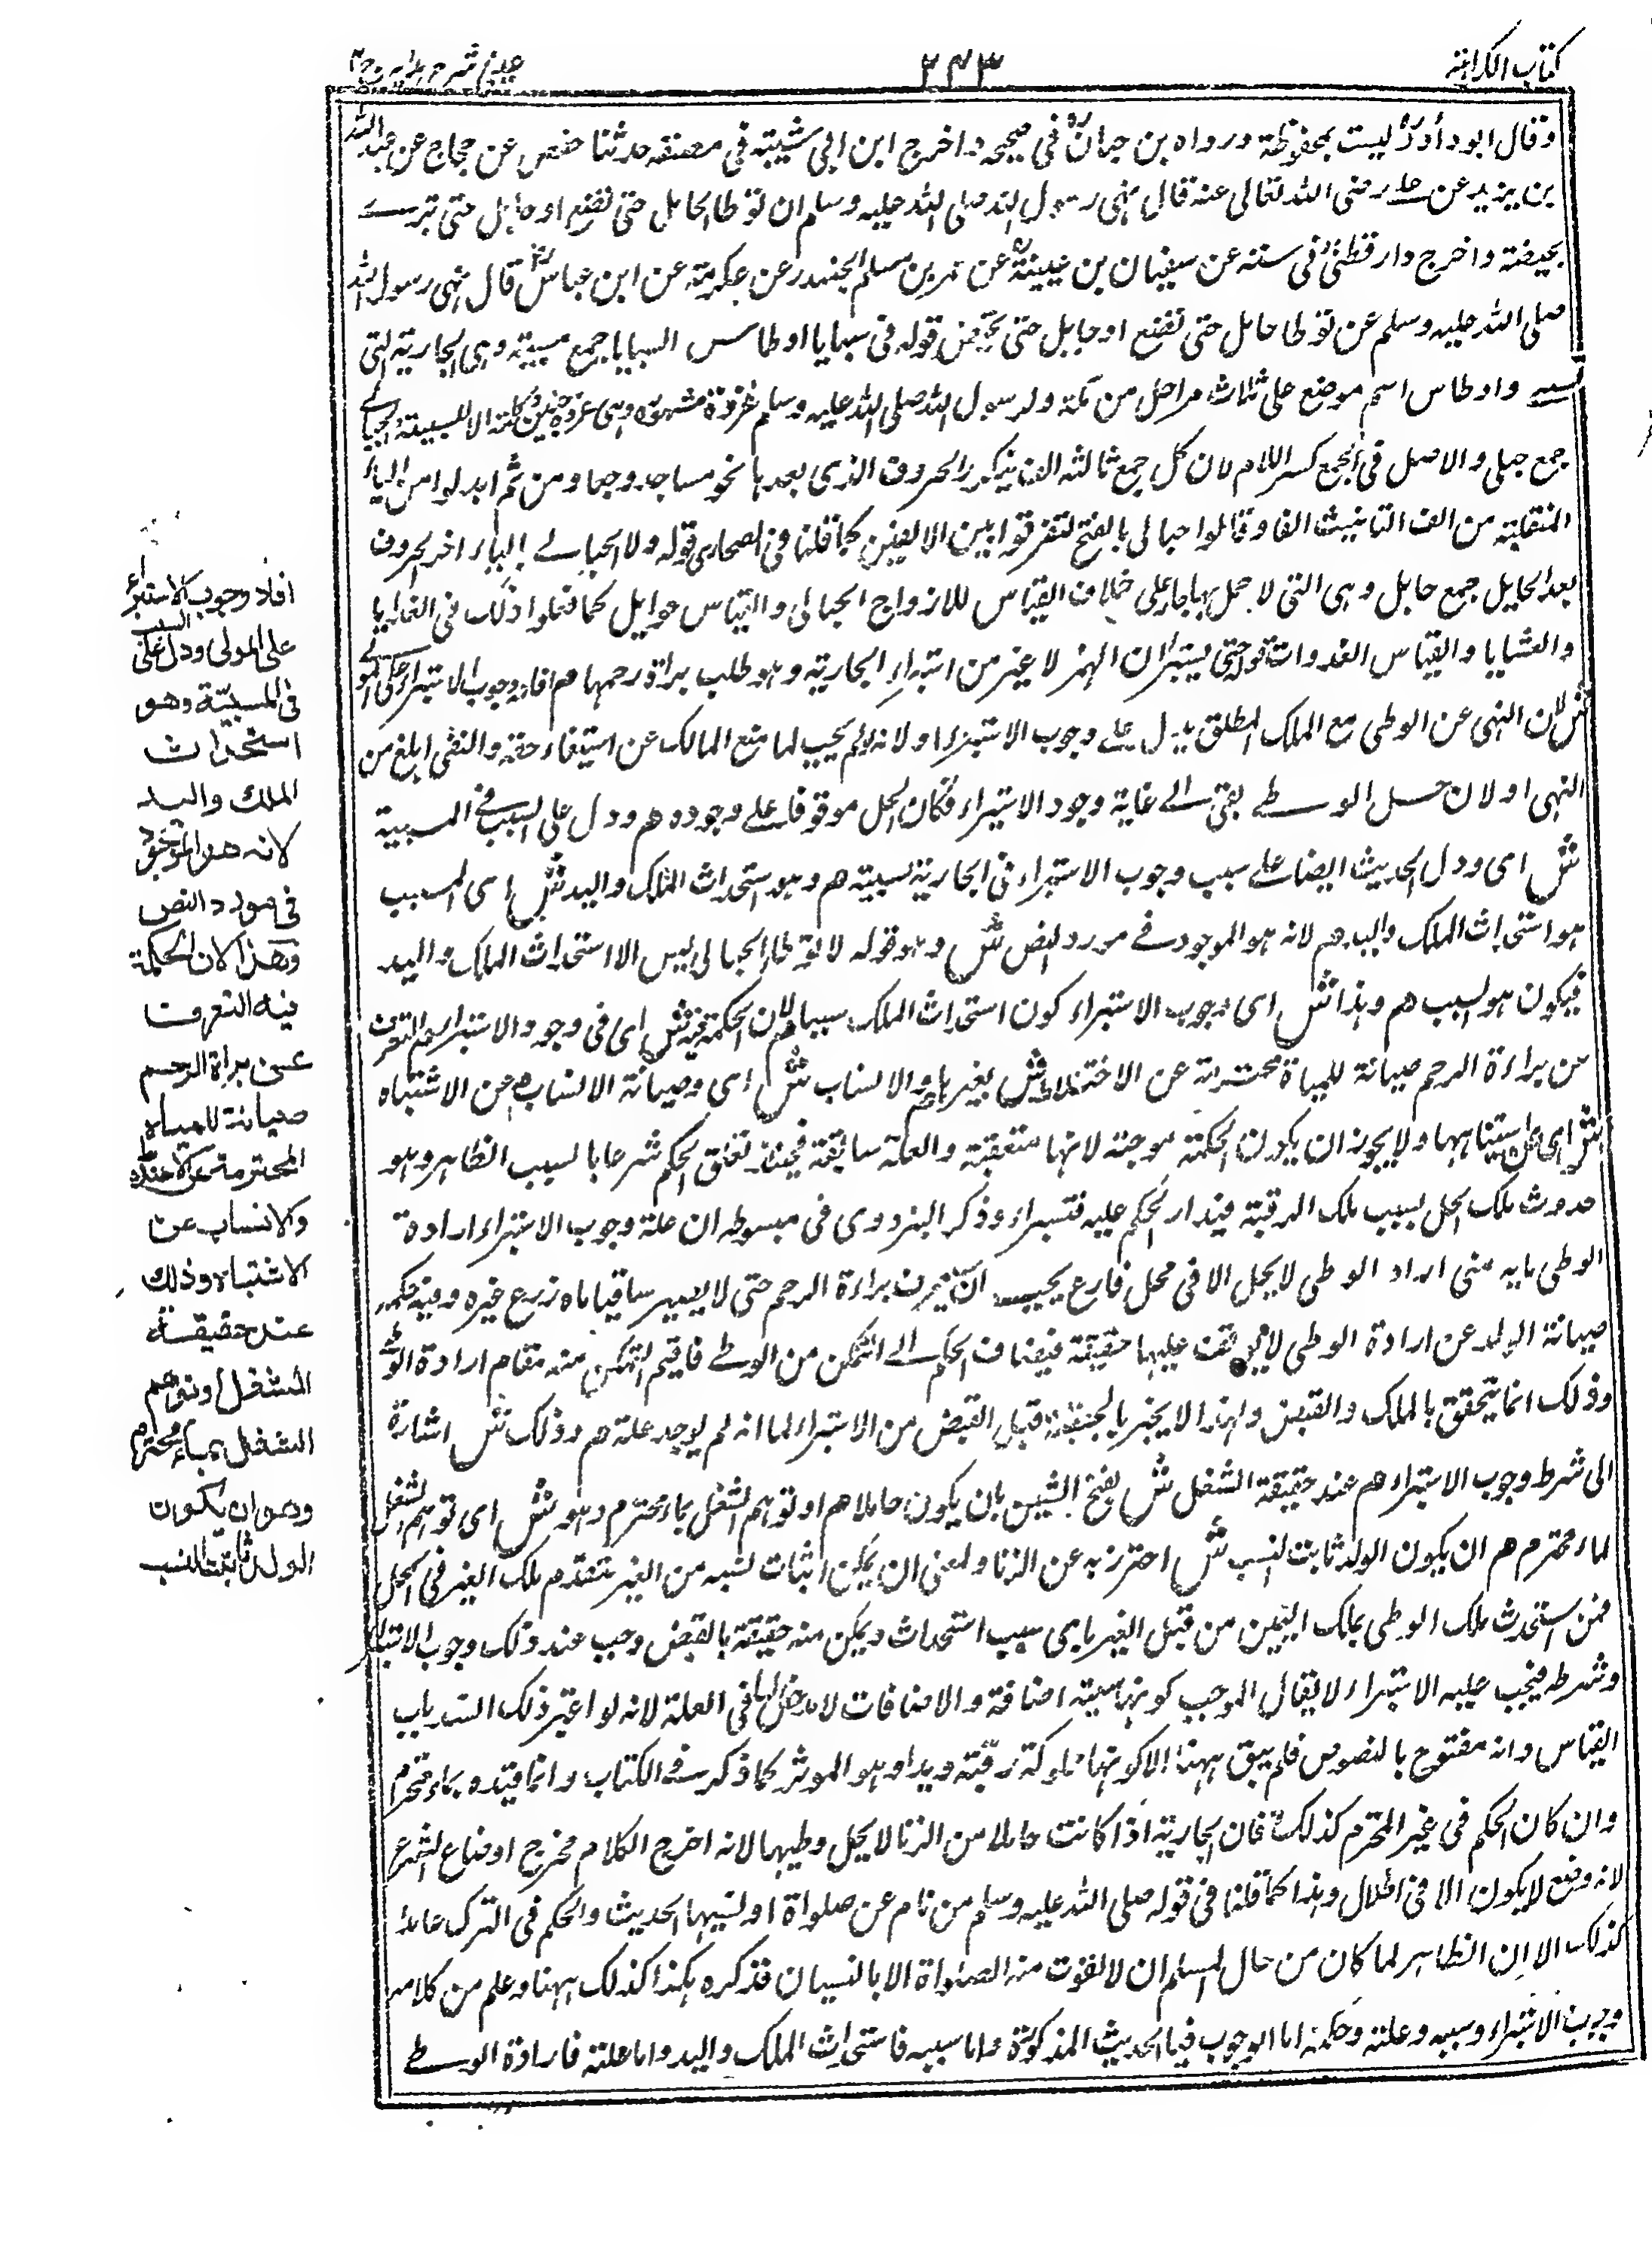 كتاب الكراهية
٢٤٣
عيني شرح هدايه ج٤
وقال ابو داؤد ليست بمحفوظة ورواه بن حبان في صحيحه واخرج ابن ابي شيبة في مصنفه حدثنا حفص عن حجاج عن عبد الله
بن يزيد عن علے رضى الله تعالى عنه قال نهى رسول الله صلى الله عليه وسلم ان توطا الحامل حتى تضع او حايل حتى تبرے
بحيضة واخرج دارقطني في سننه عن سفيان بن عيينة عن بن مسلم الجندى عن عكرمة عن ابن عباس قال نهى رسول الله
صلى الله عليه وسلم عن توطا حامل حتى تضع او حايل حتى تحيض قوله في سبايا اوطاس السبايا جمع سبية وهى الجارية التى
تسبے واوطاس اسم موضع على ثلاث مراحل من مكة ولرسول الله صلى الله عليه وسلم غزوة مشهورة وهى غزوة حنين الحبالے
جمع حبلى والاصل فى الجمع كسر اللام لان كل جمع ثالثه الف ينكسر الحروف الذى بعدها نحو مساجد وجعا ومن ثم ابدلوا من الياء
المنقلبة من الف التانيث الفا وقالوا حبالى بالفتح لتفرقوا بين الالفين كما قلنا فى الصحارى قوله ولا الحبالے الباء اخر الحروف
بعد الحايل جمع حايل وهى التى لا حمل بها جاء على خلاف القياس للازواج الحبالى والقياس حوايل كما فعلوا ذلك فى الغدايا
والعشايا والقياس الغدوات قوله حتى يستبران الهمز لا غير من استبراء الجارية وهو طلب براة رحمها هم افاد وجوب الاستبراء على المولے
ش لان النهى عن الوطى مع الملك المطلق يدل على وجوب الاستبراء ولانه لو لم يجب لما منع المالك عن استيفاء حقه والنفى ابلغ من
النهى اولان حل الوطے بقى الے غاية وجود الاستبراء فكان الحل موقوفا علے وجوده هم ودل على السبب فے المسبية
ش اى ودل الحديث ايضا علے سبب وجوب الاستبراء فى الجارية المسبية هم وهو استحداث الملك واليد ش اى السبب
هو استحداث الملك واليد هم لانه هو الموجود فے مورد النص ش وهو قوله لا توطا الحبالى ليس الا استحداث الملك واليد
فيكون هو السبب هم وهذا ش اى وجوب الاستبراء كون استحداث الملك سببا هم لان الحكمة فيه ش اى فى وجود الاستبراء هم التعرف
عن براءة الرحم صيانة للمياة المحترمة عن الاختلاط ش بغيرها هم والانساب ش اى وصيانة الانساب هم عن الاشتباه
ش اى عن اشتباهها ولا يجوز ان يكون الحكمة موجبة لانها متعقبة والعلة سابقة فحينئذ تعلق الحكم شرعا بالسبب الظاهر وهو
حدوث ملك الحل بسبب ملك الرقبة فيدار الحكم عليه فتيسراء وذكر البزدوى فى مبسوطه ان علة وجوب الاستبراء ارادة
الوطى بايه متى اراد الوطى لا يحل الا فى محل فارغ يجب ان يتعرف براءة الرحم حتى لا يصير ساقيا ماه زرع غيره وفيه حكمة
صيانة الولد عن ارادة الوطى لا يوقف عليها حقيقة فيضاف الحكم الے التمكن من الوطے فاقيم التمكن منه مقام ارادة الوطے
وذلك انما يتحقق بالملك والقبض ولهذا لا يجتزء بالحيضة قبل القبض من الاستبراء لما انه لم يوجد علته هم وذلك ش اشارة
الى شرط وجوب الاستبراء هم عند حقيقة الشغل ش بفتح الشين بان يكون حاملا هم او توهم الشغل بماء محترم وهو ش اى توهم الشغل
لماء محترم هم ان يكون الولد ثابت النسب ش احترز به عن الزنا والمعنى ان يمكن اثبات نسبه من الغير بتقدم ملك الغير فى المحل
فمن استحدث ملك الوطى بملك اليمين من قبل الغير باى سبب استحداث ويمكن منه حقيقة بالقبض وجب عند ذلك وجوب الاستبراء
وشرطه فيجب عليه الاستبراء لا يقال الموجب كونها مسبية اضافة والاضافات لا مدخل لها فى العلة لانه لو اعتبر ذلك انسد باب
القياس وانه مفتوح بالنصوص فلم يبق ههنا الا كونها مملوكة رقبة ويدا وهو الموثر كما ذكر فے الكتاب وانما قيده بماء محترم
وان كان الحكم فى غير المحترم كذلك فان الجارية اذا كانت حاملا من الزنا لا يحل وطيها لانه اخرج الكلام مخرج اوضاع الشرع
لانه وضع لا يكون الا فى الحلال وهذا كما قلنا فى قوله صلى الله عليه وسلم من نام عن صلواة او نسيها الحديث والحكم فى الترك عامدا
كذلك الا ان الظاهر لما كان من حال المسلم ان لا تفوت منه الصلواة الا بالنسيان فذكره هكذا كذلك ههنا وعلم من كلامه
وجوب الاستبراء وسببه وعلته وحكمته اما الوجوب فبالحديث المذكورة واما سببه فاستحداث الملك واليد واما علته فارادة الوطے
افاد وجوب الاستبراء
على المولى ودل على السبب
فى المسبيّة وهو
استحداث
الملك واليد
لانه هو الموجود
فى مورد النص
وهذا لان الحكمة
فيه التعرف
عن براة الرحم
صيانة للمياه
المحترمة عن الاختلاط
والانساب عن
الاشتباه وذلك
عند حقيقة
الشغل او توهم
الشغل بماء محترم
وهو ان يكون
الولد ثابت النسب